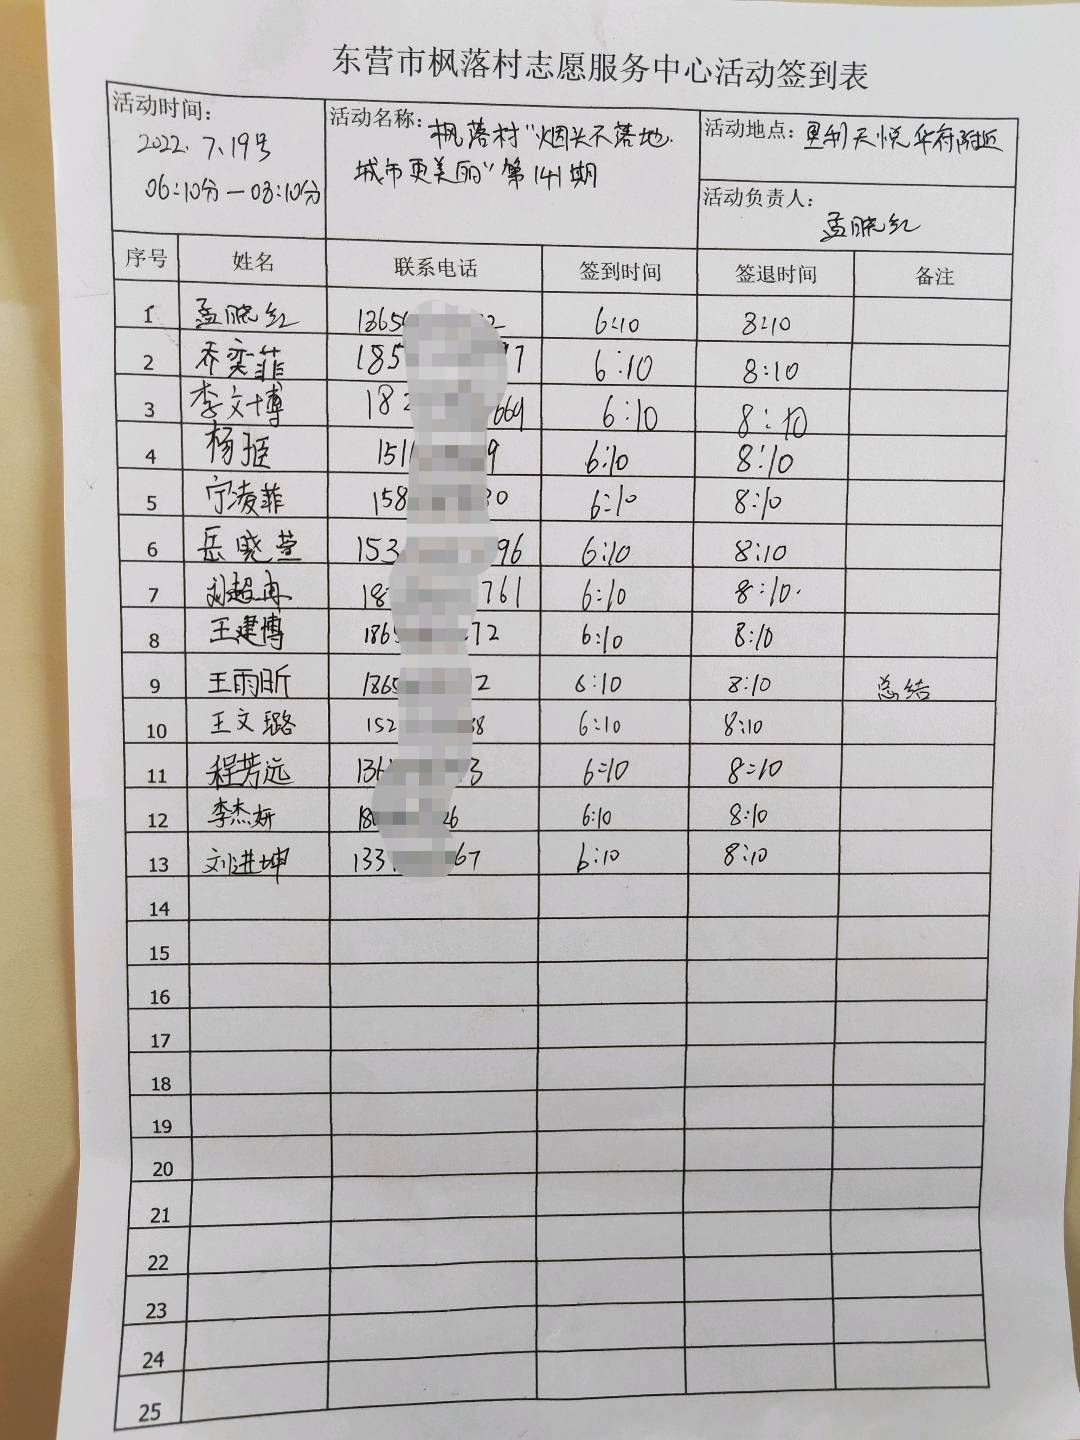 东营市枫落村志愿服务中心活动签到表
活动时间：
2022.7.19号
06:10分—08:10分
活动名称：枫落村"烟头不落地.
城市更美丽"第141期
活动地点：天悦华府附近
活动负责人：
孟晓红
序号 姓名 联系电话 签到时间 签退时间 备注
1 孟晓红 6:10 8:10
2 乔奕菲 185 6:10 8:10
3 李文博 18 669 6:10 8:10
4 杨 151 9 6:10 8:10
5 宁凌菲 158 30 6:10 8:10
6 岳晓萱 153 96 6:10 8:10
7 刘超冉 18 761 6:10 8:10.
8 王建博 186 72 6:10 8:10
9 王雨昕 186 2 6:10 8:10 总结
10 王文璐 152 8 6:10 8:10
11 程芳远 136 3 6:10 8:10
12 李杰妍 18 26 6:10 8:10
13 刘进坤 133 67 6:10 8:10
14
15
16
17
18
19
20
21
22
23
24
25